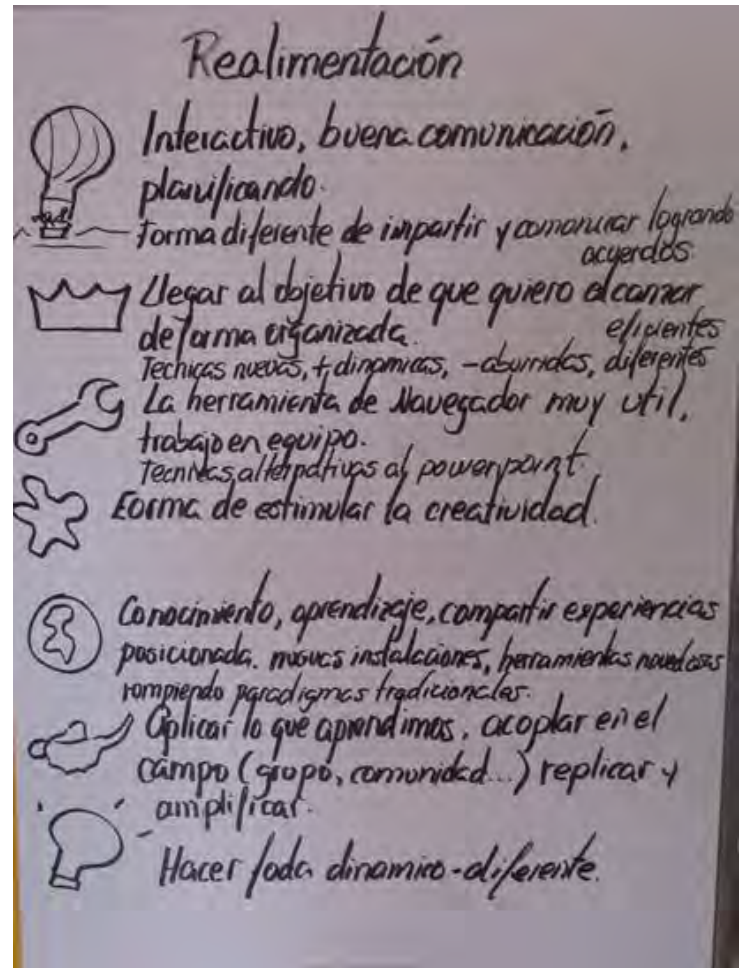 Realimentación
Interactivo, buena comunicación,
planificando.
Forma diferente de impartir y comunicar logrando
acuerdos
Llegar al objetivo de que quiero alcanzar
de forma organizada. eficientes
Technicas nuevas, + dinamicas, - aburridas, diferentes
La herramienta de Navegador muy util,
trabajo en equipo.
Tecnicas alternativas al powerpoint
Forma de estimular la creatividad.
Conocimiento, aprendizaje, compartir experiencias
posicionada. nuevas instalaciones, herramientas novedosas
rompiendo paradigmas tradicionales.
Aplicar lo que aprendimos, acoplar en el
campo (grupo, comunidad...) replicar y
amplificar.
Hacer dinamico-diferente.